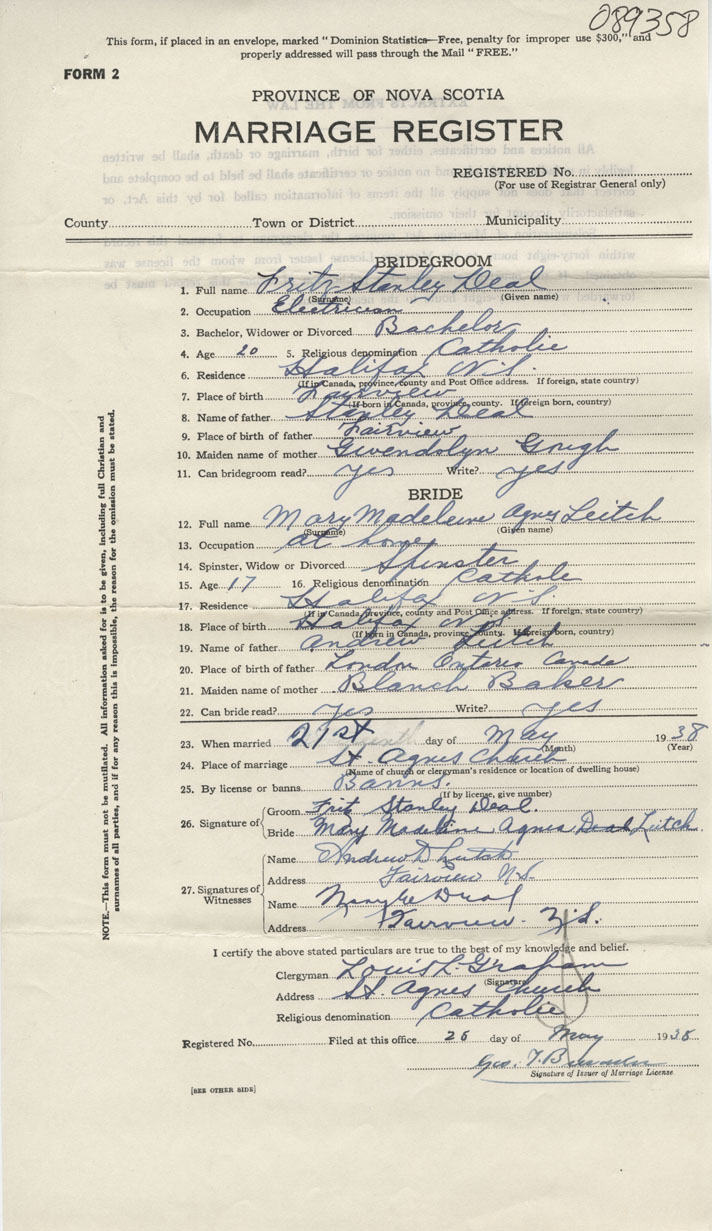 089358
This form, if placed in an envelope, marked "Dominion Statistics—Free, penalty for improper use $300," and
properly addressed will pass through the Mail "FREE."
FORM 2
PROVINCE OF NOVA SCOTIA
MARRIAGE REGISTER
REGISTERED No.
(For use of Registrar General only)
County Town or District Municipality
BRIDEGROOM
1. Full name Fritz Stanley Deal
(Surname) (Given name)
2. Occupation Electrician
3. Bachelor, Widower or Divorced Bachelor
4. Age 20 5. Religious denomination Catholic
6. Residence Halifax N.S.
(If in Canada, province, county and Post Office address. If foreign, state country)
7. Place of birth Fairview
(If born in Canada, province, county. If foreign born, country)
8. Name of father Stanley Deal
9. Place of birth of father Fairview
10. Maiden name of mother Gwendolyn Gough
11. Can bridegroom read? yes Write? yes
BRIDE
12. Full name Mary Madeleine Agnes Leitch
(Surname) (Given name)
13. Occupation at home
14. Spinster, Widow or Divorced Spinster
15. Age 17 16. Religious denomination Cathole
17. Residence Halifax N.S.
(If in Canada, province, county and Post Office address. If foreign, state country)
18. Place of birth Halifax N.S.
(If born in Canada, province, county. If foreign born, country)
19. Name of father Andrew Leitch
20. Place of birth of father London Ontario Canada
21. Maiden name of mother Blanch Baker
22. Can bride read? yes Write? yes
23. When married 21st day of May 1938
(Month) (Year)
24. Place of marriage St. Agnes Church
(Name of church or clergyman's residence or location of dwelling house)
25. By license or banns Banns.
(If by license, give number)
26. Signature of Groom Fritz Stanley Deal.
Bride Mary Madeline Agnes Deal Leitch.
27. Signatures of Witnesses
Name Andrew D Leitch
Address Fairview N.S.
Name Deal
Address Fairview. N.S.
I certify the above stated particulars are true to the best of my knowledge and belief.
Clergyman Louis L. Graham
(Signature)
Address St. Agnes Church
Religious denomination Catholic
Registered No. Filed at this office 26 day of May 1938
Geo. T.
Signature of Issuer of Marriage License
[SEE OTHER SIDE]
NOTE.—This form must not be mutilated. All information asked for is to be given, including full Christian and
surnames of all parties, and if for any reason this is impossible, the reason for the omission must be stated.